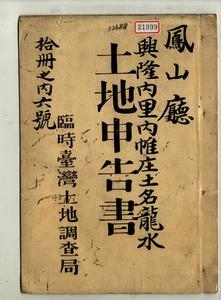 12688
21999
鳳山廳
興隆內里內帷庄土名龍水
土地申告書
拾冊之內六號
臨時臺灣土地調查局